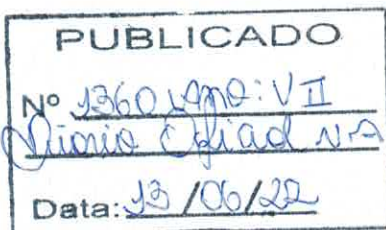 PUBLICADO
Nº 1360 Ano: VII
Diario Oficial NA
Data: 13/06/22